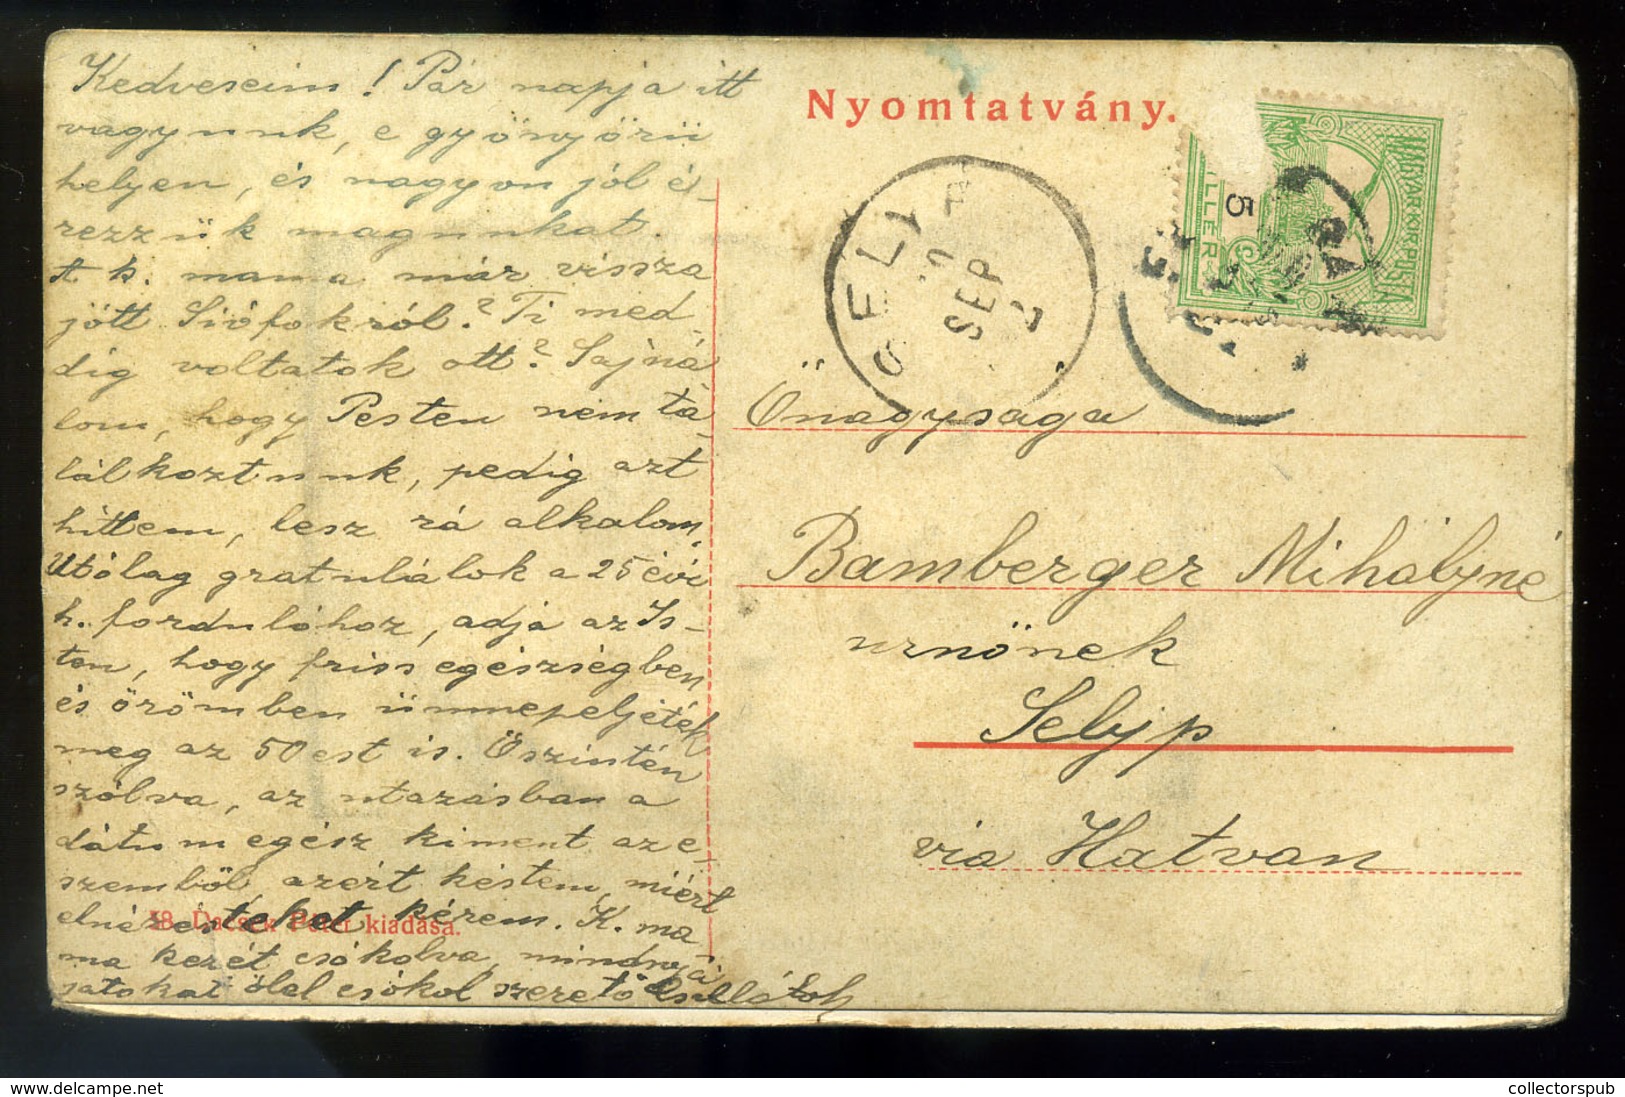 Kedveseim! Pár napja itt
vagyunk, e gyönyörü
helyen, és nagyon jól é-
rezzük magunkat.
t k. mama már vissza
jött Siófokról? Ti med-
dig voltatok ott? Sajná-
lom, hogy Pesten nem ta-
lálkoztunk, pedig azt
hittem, lesz rá alkalom.
Utólag gratulálok a 25 évi
h. fordulóhoz, adja az Is-
ten, hogy friss egészségben
és örömben ünnepeljéték
meg az 50 est is. Őszintén
szólva, az utazásban a
dátum egész kiment az e-
szemből, azért késtem, miért
elnézésteket kérem. K. ma
ma kezét csókolva, mindnyá
jatokat ölel csókol szerető
58. Dacsek Péter kiadása.
Nyomtatvány.
MAGYAR KIR. POSTA
5
FILLÉR
SELY
SEP 2
Őnagysága
Bamberger Mihályné
urnőnek
Selyp
via Hatvan
www.delcampe.net
collectorspub